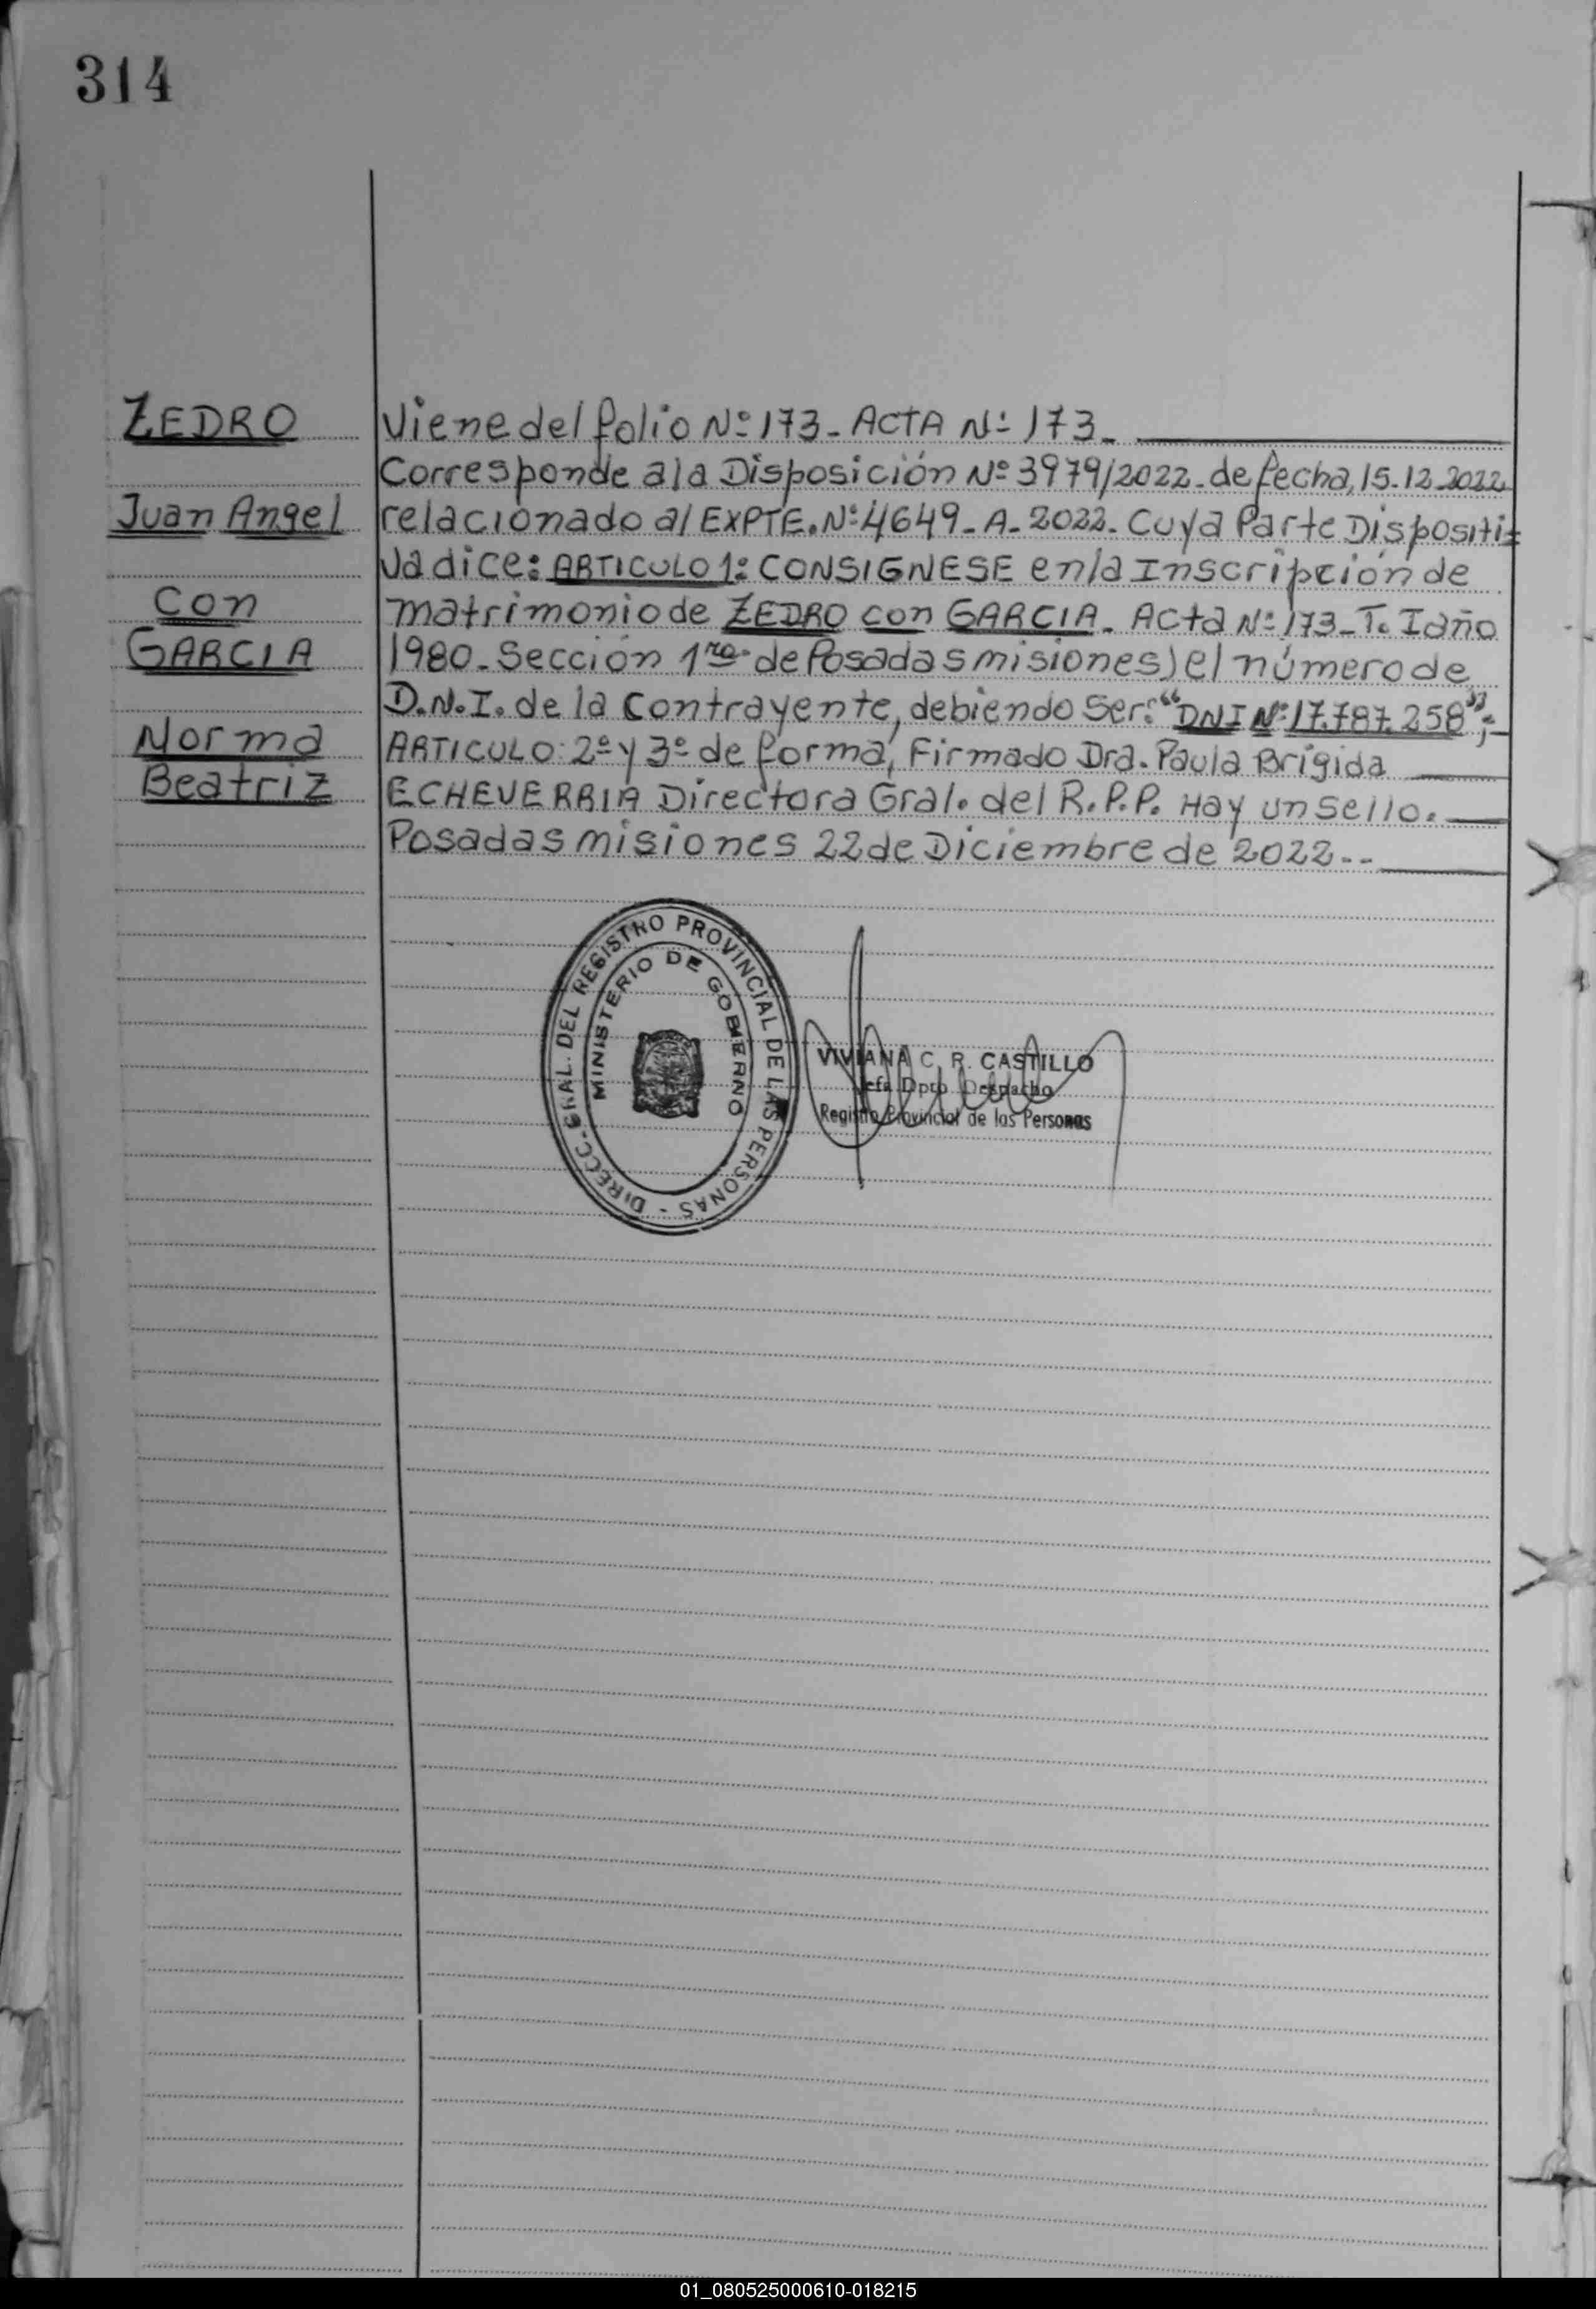 314
ZEDRO
Juan Angel
Con
GARCIA
Norma
Beatriz
Viene del folio Nº 173_ ACTA Nº 173_
Corresponde a la Disposición Nº 3979/2022_ de fecha, 15.12.2022
relacionado al EXPTE. Nº 4649_A_2022_ Cuya Parte Dispositi=
va dice: ARTICULO 1: CONSIGNESE en la Inscripción de
matrimonio de ZEDRO con GARCIA_ Acta Nº 173_ T. I año
1980_ Sección 1ra. de Posadas misiones) el número de
D.N.I. de la Contrayente, debiendo Ser: "DNI Nº 17.787.258";_
ARTICULO: 2º y 3º de forma, Firmado Dra. Paula Brigida
ECHEVERRIA Directora Gral. del R.P.P. Hay un Sello.
Posadas misiones 22 de Diciembre de 2022--
DIRECC. GRAL. DEL REGISTRO PROVINCIAL DE LAS PERSONAS -
MINISTERIO DE GOBIERNO
VIVIANA C. R. CASTILLO
Jefa Dpto. Despacho
Registro Provincial de las Personas
01_080525000610-018215